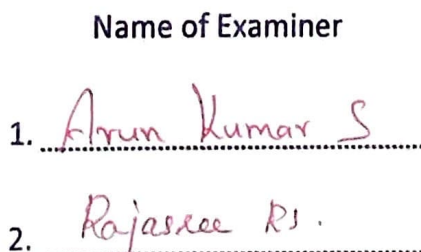 Name of Examiner
1. Arun Kumar S
2. Rajasree RS.